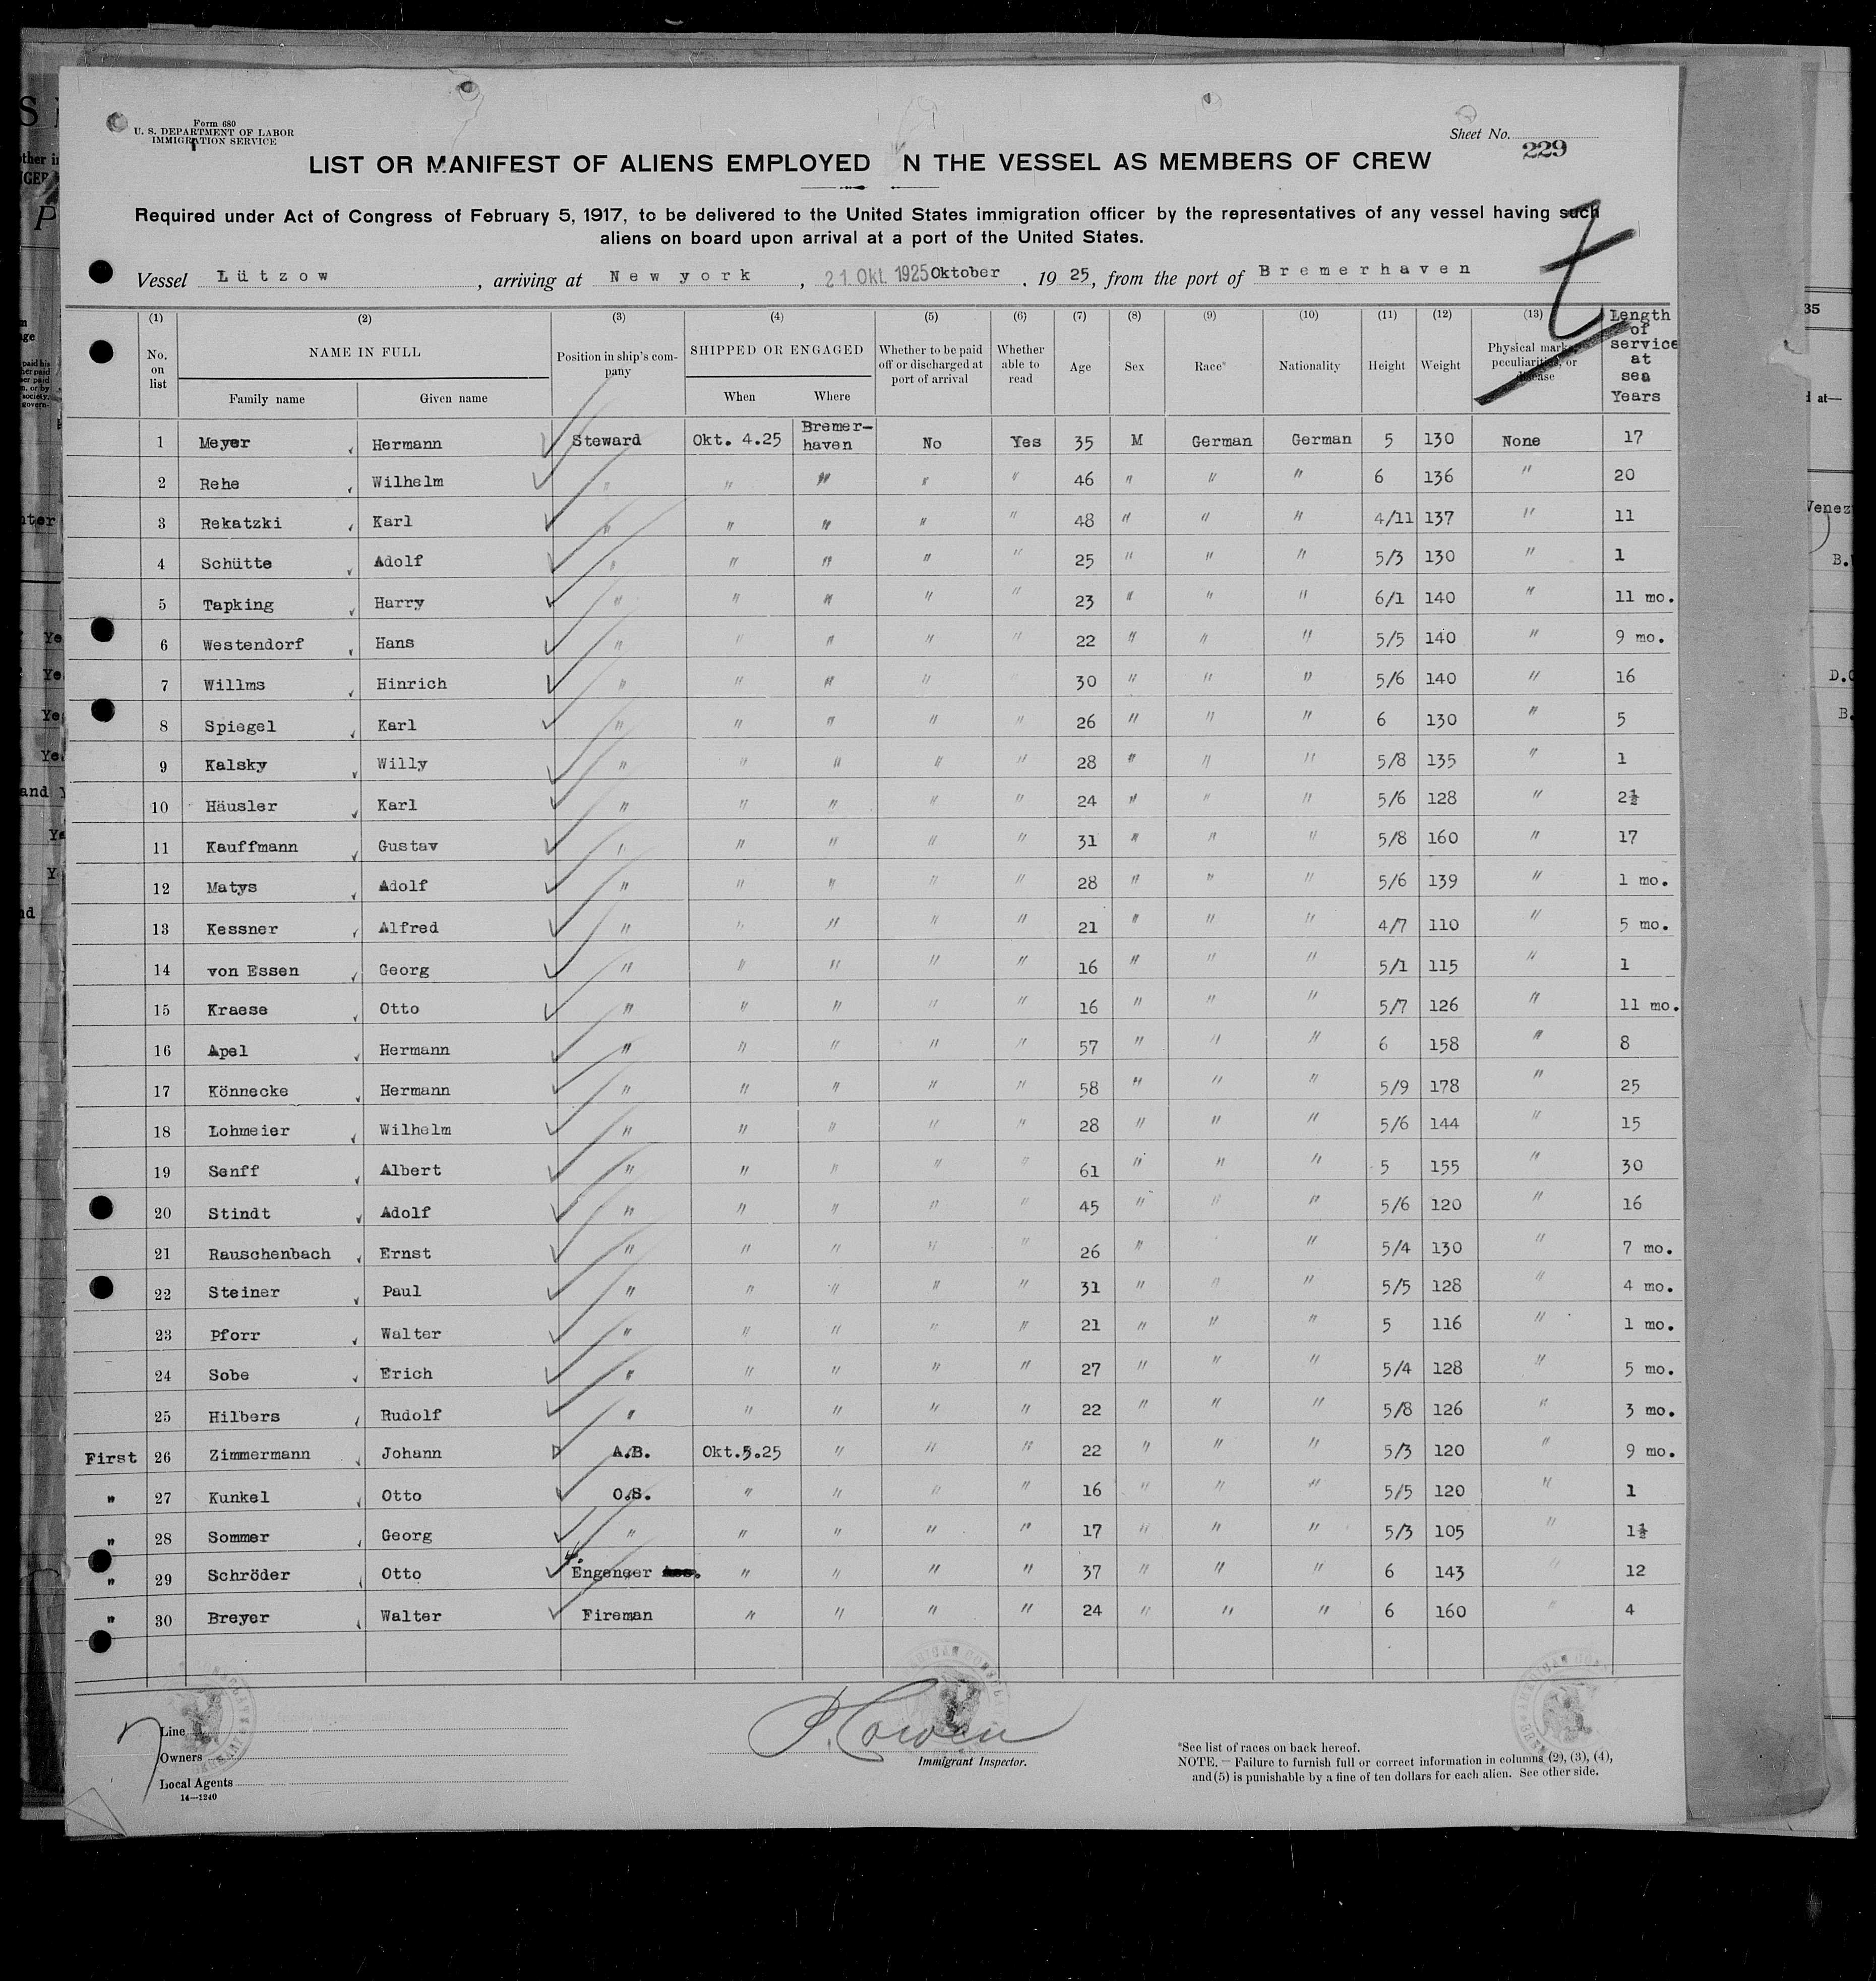 Form 680
U. S. DEPARTMENT OF LABOR
IMMIGRATION SERVICE
Sheet No.
229
LIST OR MANIFEST OF ALIENS EMPLOYED N THE VESSEL AS MEMBERS OF CREW
Required under Act of Congress of February 5, 1917, to be delivered to the United States immigration officer by the representatives of any vessel having such
aliens on board upon arrival at a port of the United States.
Vessel Lützow, arriving at New york, 21. Okt. 1925 Oktober, 1925, from the port of Bremerhaven
(1) (2) (3) (4) (5) (6) (7) (8) (9) (10) (11) (12) (13)
No. on list NAME IN FULL Family name Given name Position in ship's company SHIPPED OR ENGAGED When Where Whether to be paid off or discharged at port of arrival Whether able to read Age Sex Race* Nationality Height Weight Physical marks, peculiarities, or disease Length of service at sea Years
1 Meyer Hermann Steward Okt. 4.25 Bremer-haven No Yes 35 M German German 5 130 None 17
2 Rehe Wilhelm " " " " " 46 " " " 6 136 " 20
3 Rekatzki Karl " " " " " 48 " " " 4/11 137 " 11
4 Schütte Adolf " " " " " 25 " " " 5/3 130 " 1
5 Tapking Harry " " " " " 23 " " " 6/1 140 " 11 mo.
6 Westendorf Hans " " " " " 22 " " " 5/5 140 " 9 mo.
7 Willms Hinrich " " " " " 30 " " " 5/6 140 " 16
8 Spiegel Karl " " " " " 26 " " " 6 130 " 5
9 Kalsky Willy " " " " " 28 " " " 5/8 135 " 1
10 Häusler Karl " " " " " 24 " " " 5/6 128 " 2½
11 Kauffmann Gustav " " " " " 31 " " " 5/8 160 " 17
12 Matys Adolf " " " " " 28 " " " 5/6 139 " 1 mo.
13 Kessner Alfred " " " " " 21 " " " 4/7 110 " 5 mo.
14 von Essen Georg " " " " " 16 " " " 5/1 115 " 1
15 Kraese Otto " " " " " 16 " " " 5/7 126 " 11 mo.
16 Apel Hermann " " " " " 57 " " " 6 158 " 8
17 Könnecke Hermann " " " " " 58 " " " 5/9 178 " 25
18 Lohmeier Wilhelm " " " " " 28 " " " 5/6 144 " 15
19 Senff Albert " " " " " 61 " " " 5 155 " 30
20 Stindt Adolf " " " " " 45 " " " 5/6 120 " 16
21 Rauschenbach Ernst " " " " " 26 " " 5/4 130 " 7 mo.
22 Steiner Paul " " " " " 31 " " " 5/5 128 " 4 mo.
23 Pforr Walter " " " " " 21 " " " 5 116 " 1 mo.
24 Sobe Erich " " " " " 27 " " " 5/4 128 " 5 mo.
25 Hilbers Rudolf " " " " " 22 " " " 5/8 126 " 3 mo.
First 26 Zimmermann Johann A.B. Okt.5.25 " " " 22 " " " 5/3 120 " 9 mo.
" 27 Kunkel Otto O.S. " " " " 16 " " " 5/5 120 " 1
" 28 Sommer Georg " " " " " 17 " " " 5/3 105 " 1½
" 29 Schröder Otto 4. Engeneer " " " " 37 " " " 6 143 " 12
" 30 Breyer Walter Fireman " " " " 24 " " " 6 160 " 4
Line
Owners
Local Agents
14—1240
Immigrant Inspector.
*See list of races on back hereof.
NOTE. — Failure to furnish full or correct information in columns (2), (3), (4),
and (5) is punishable by a fine of ten dollars for each alien. See other side.